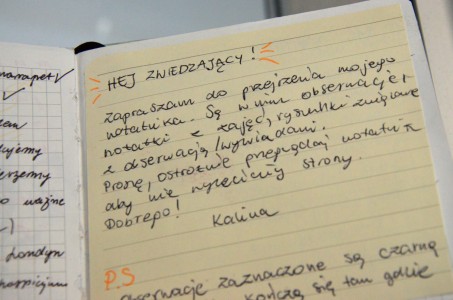 HEJ ZWIEDZAJĄCY!
Zapraszam do przejrzenia mojego
notatnika. Są w nim obserwacje,
notatki z zajęć, rysunki związane
z obserwacją/wywiadami.
Proszę, ostrożnie przeglądaj notatnik
aby nie wyleciały strony.
Dobrego!
Kalina
P.S
Obserwacje zaznaczone są czarną
kończą się tam gdzie
ważne
Londyn